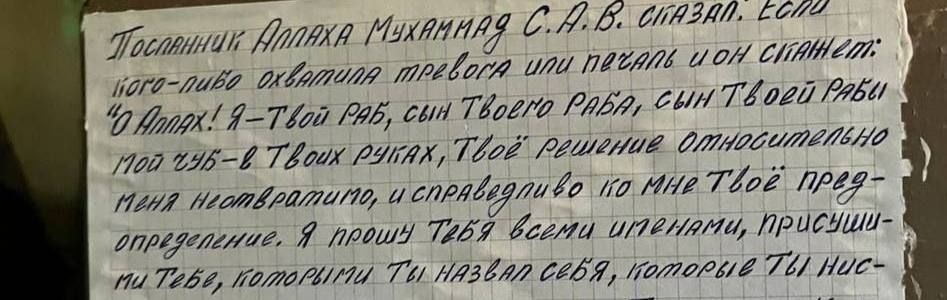 Посланник Аллаха Мухаммад С.А.В. сказал: Если
кого-либо охватила тревога или печаль и он скажет:
"О Аллах! Я – Твой раб, сын Твоего раба, сын Твоей рабы
мой чуб – в Твоих руках, Твоё решение относительно
меня неотвратимо, и справедливо ко мне Твоё пред-
определение. Я прошу Тебя всеми именами, присущи-
ми Тебе, которыми Ты назвал себя, которые Ты нис-